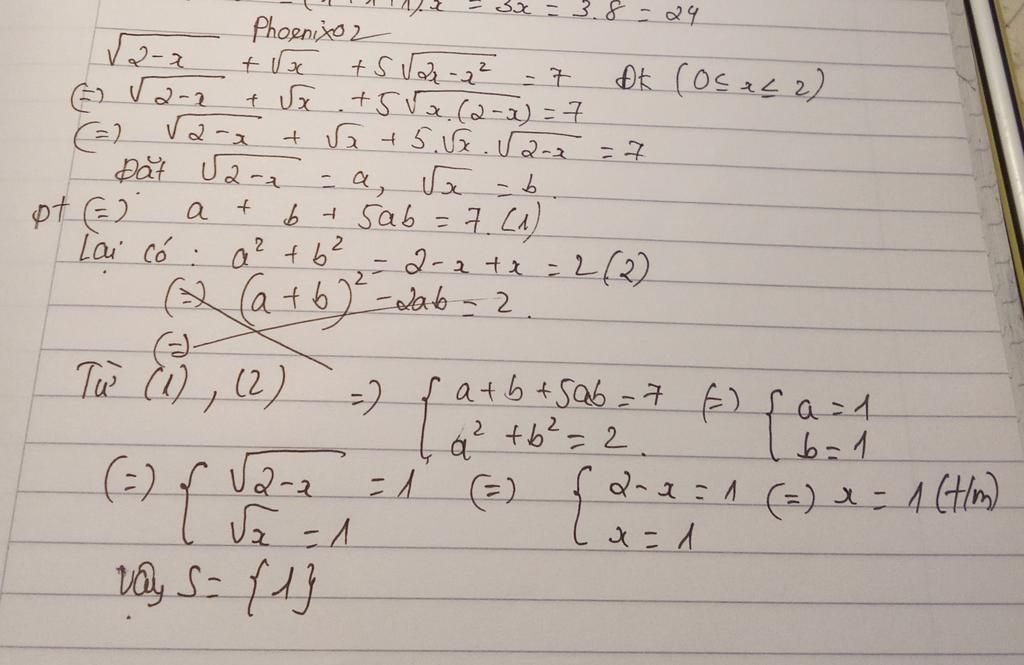 x = 3x = 3.8 = 24
Phoenix02
√(2-x) + √x + 5√(2x-x²) = 7 ĐK (0 ≤ x ≤ 2)
(=) √(2-x) + √x + 5√(x.(2-x)) = 7
(=) √(2-x) + √x + 5.√x.√(2-x) = 7
Đặt √(2-x) = a, √x = b.
pt (=) a + b + 5ab = 7 (1)
Lại có : a² + b² = 2-x+x = 2 (2)
(=) (a+b)² - 2ab = 2.
(=)
Từ (1), (2) =) { a+b+5ab = 7 (=) { a = 1
a² + b² = 2. b = 1
(=) { √(2-x) = 1 (=) { 2-x = 1 (=) x = 1 (t/m)
√x = 1 x = 1
Vậy S = {1}